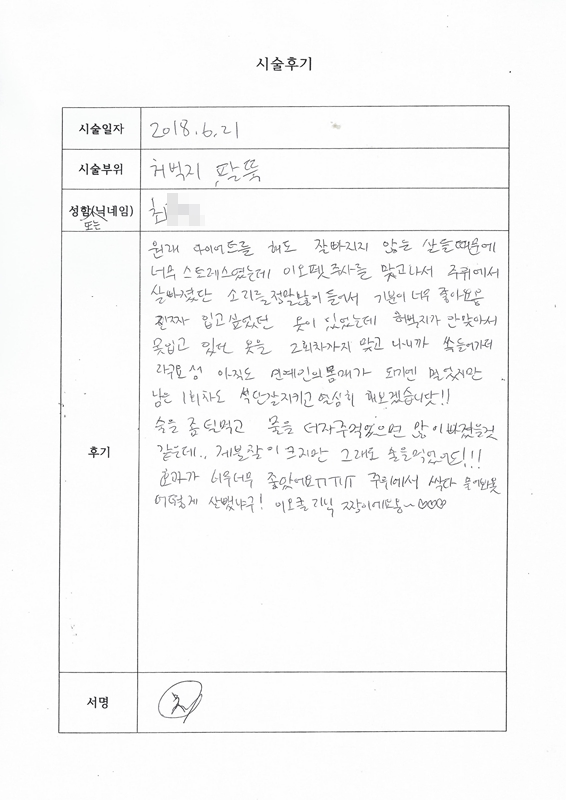 시술후기
시술일자 2018.6.21
시술부위 허벅지 팔뚝
성함(닉네임) 최
또는
원래 다이어트를 해도 잘빠지지 않는 살들때문에
너무 스트레스였는데 이오펫주사를 맞고나서 주위에서
살빠졌단 소리를 정말많이 들어서 기분이 너무 좋아요용
진짜 입고싶었던 옷이 있었는데 허벅지가 안맞아서
못입고 있던 옷을 2회차까지 맞고 나니까 쑥들어가져
라구요 성 아직도 연예인의 몸매가 되기엔 멀었지만
남은 1회차도 식단잘지키고 열심히 해보겠습니닷!!
술을 좀 덜먹고 물을 더자주먹었으면 많이빠졌을것
같은데.. 제불찰이 크지만 그래도 술을먹었어도!!!
효과가 너무너무 좋았어요ㅠㅠㅠ 주위에서 싹다 물어봐욧
어떻게 살뺐냐구! 이오클리닉 짱이에요용~ ♡♡♡
후기
서명 최